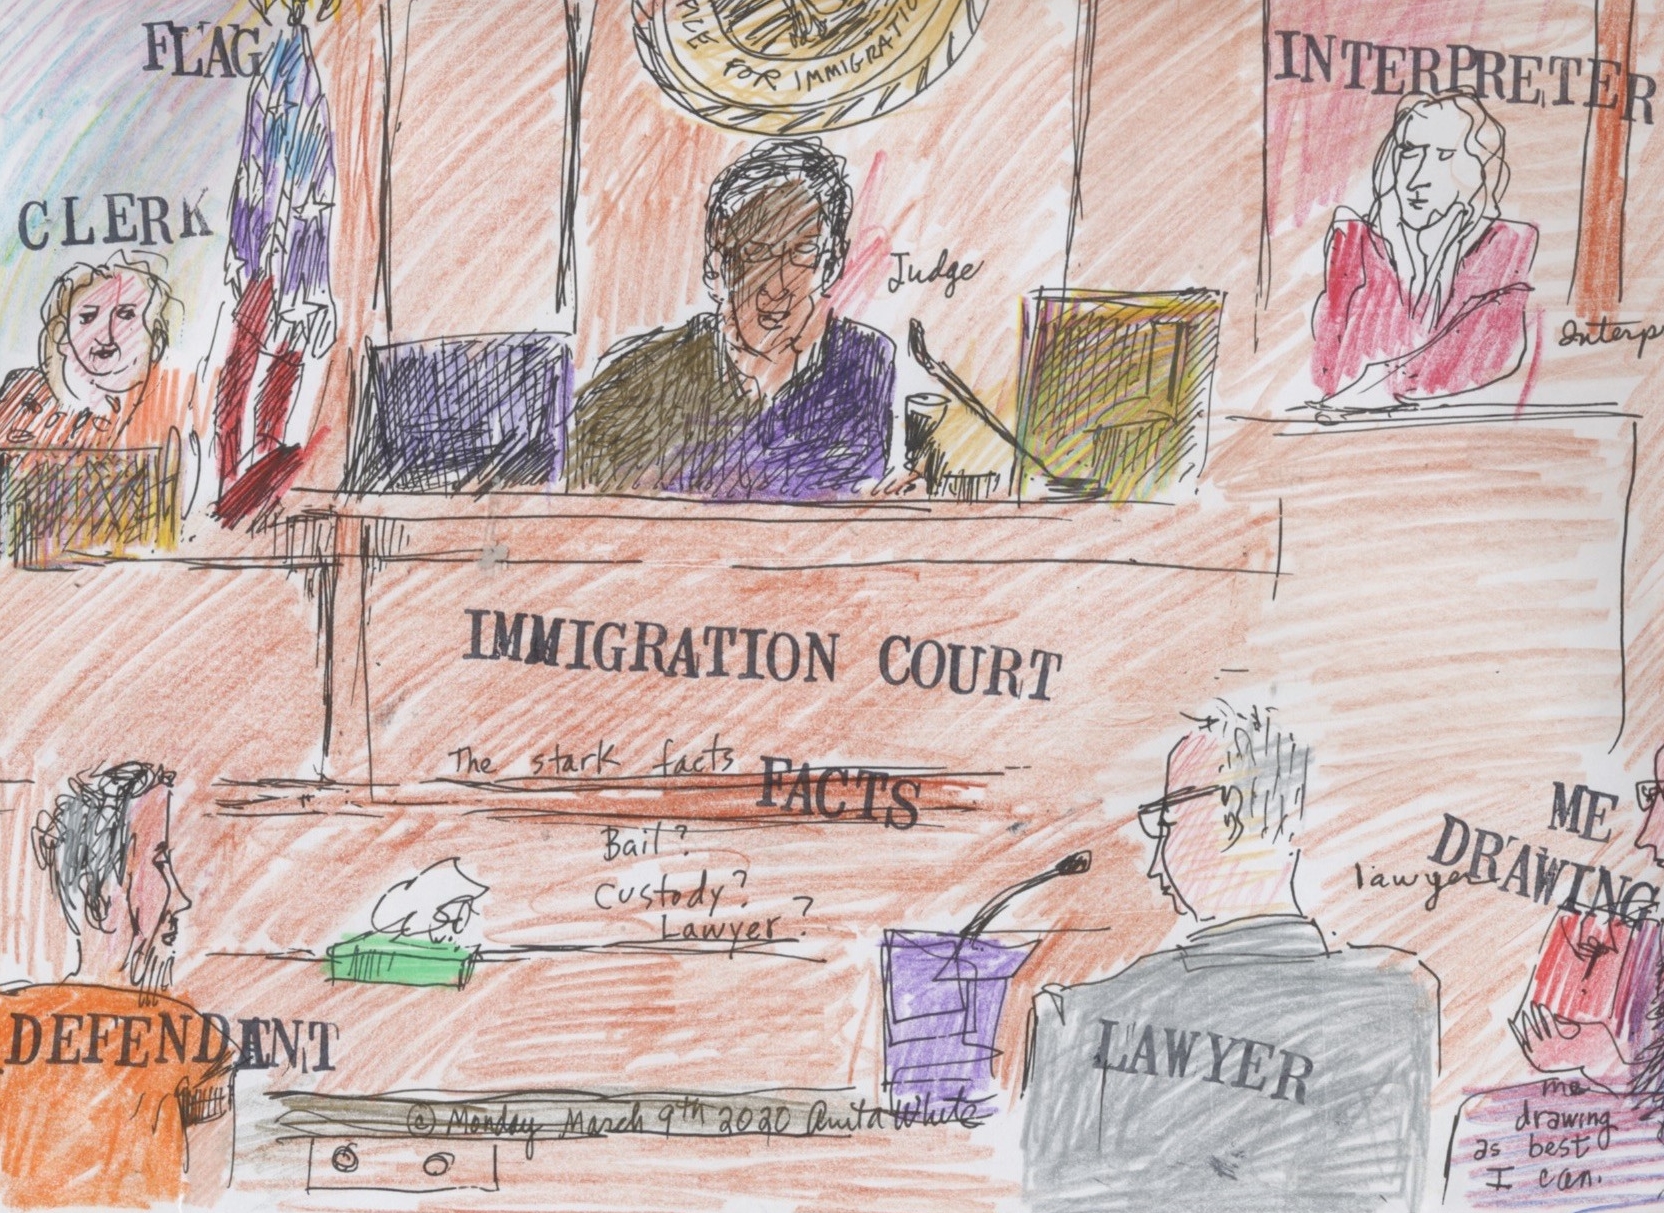 FLAG
FOR IMMIGRATIO
INTERPRETER
CLERK
Judge
Interp
IMMIGRATION COURT
The stark facts
FACTS
Bail?
Custody?
Lawyer?
ME
DRAWING
lawyer
DEFENDANT
LAWYER
© Monday March 9th 2020 Anita White
me
drawing
as best
I can.